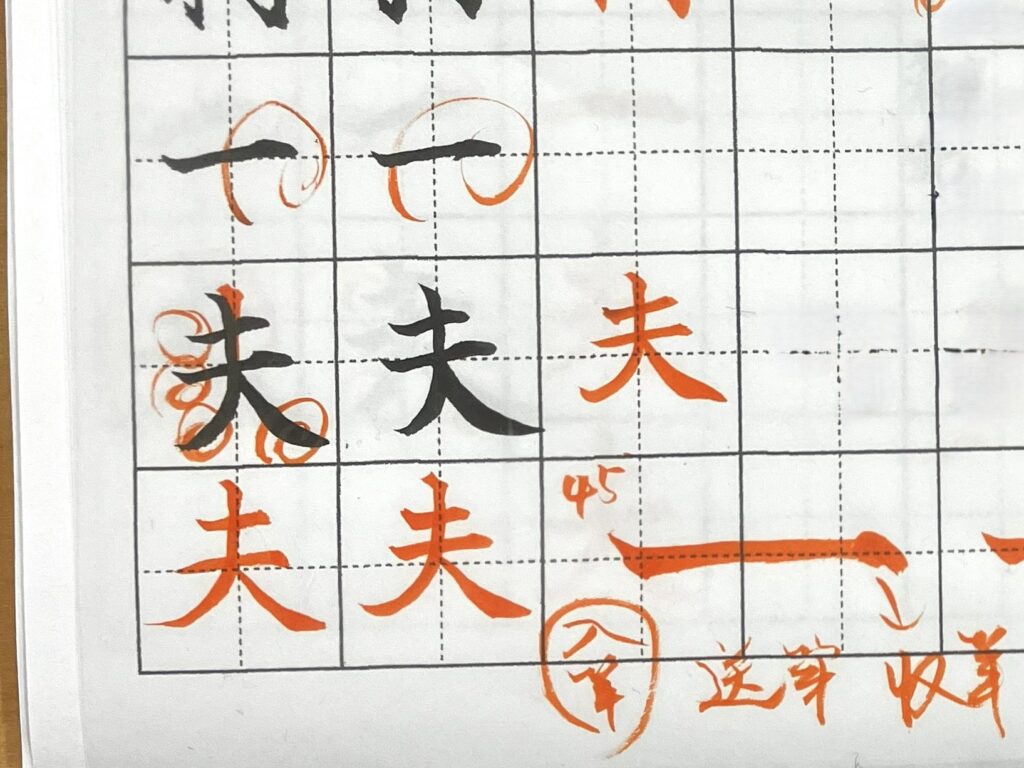 一 一
夫 夫 夫
夫 夫 45 一
入笔 送笔 收笔